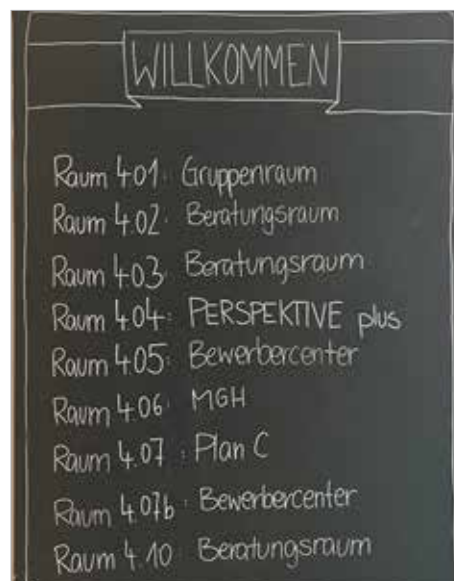 WILLKOMMEN
Raum 4.01: Gruppenraum
Raum 4.02: Beratungsraum
Raum 4.03 Beratungsraum
Raum 4.04: PERSPEKTIVE plus
Raum 4.05: Bewerbercenter
Raum 4.06: MGH
Raum 4.07: Plan C
Raum 4.07b: Bewerbercenter
Raum 4.10 Beratungsraum